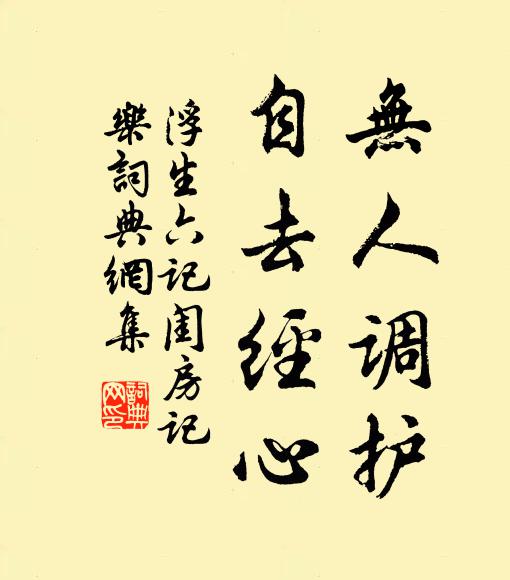 無人调护
自去經心
浮生六记闺房记
樂詞典網集
詞典
网印